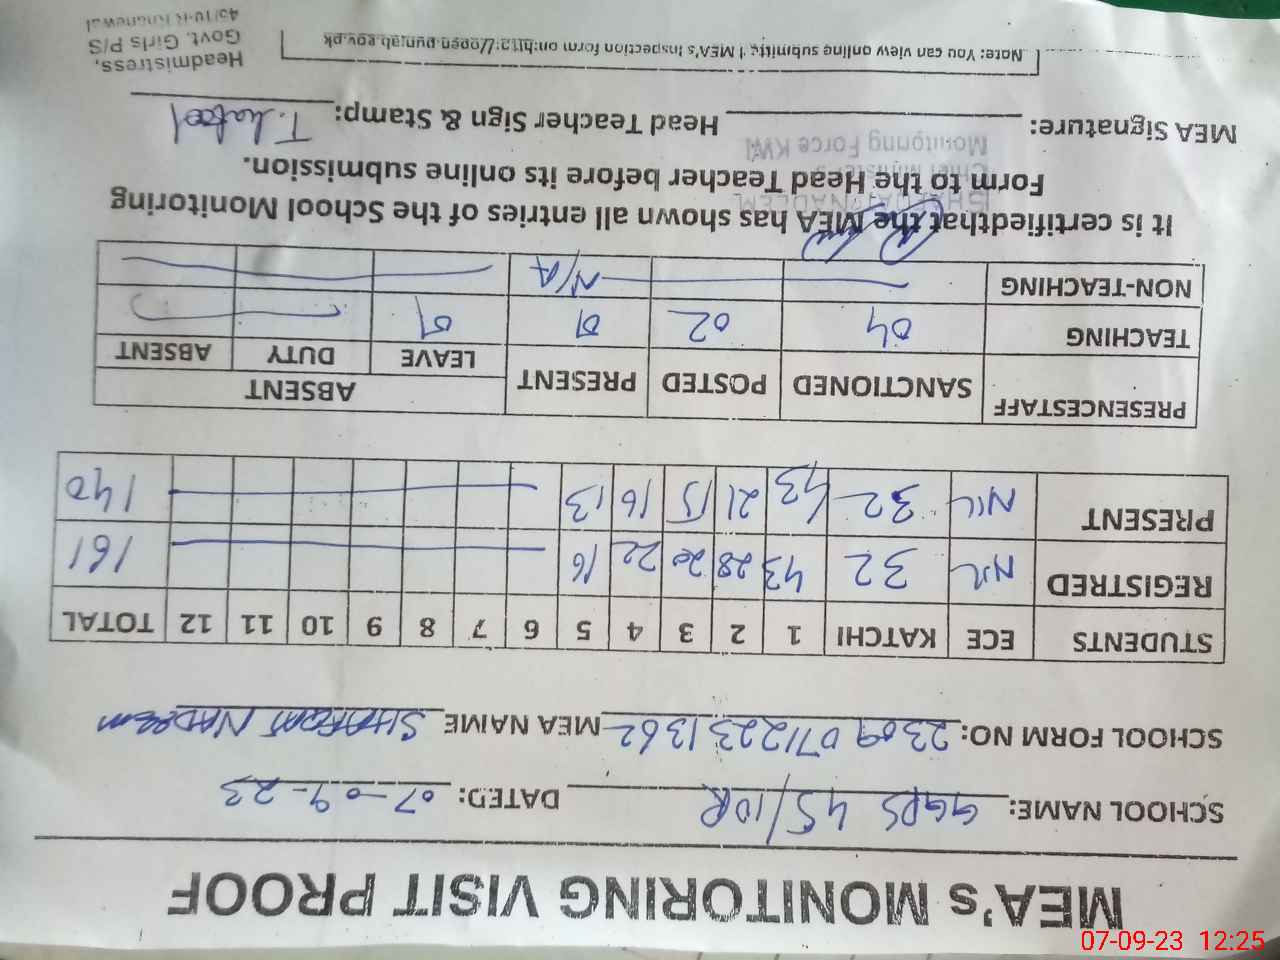 MEA's MONITORING VISIT PROOF
SCHOOL NAME: GGPS 45/10R DATED: 07-09-23
SCHOOL FORM NO: 230907122231362 MEA NAME SHAFQAT NADEEM
STUDENTS ECE KATCHI 1 2 3 4 5 6 7 8 9 10 11 12 TOTAL
REGISTRED NIL 32 43 28 20 22 16 161
PRESENT NIL 32 43 21 15 16 13 140
PRESENCESTAFF SANCTIONED POSTED PRESENT ABSENT
LEAVE DUTY ABSENT
TEACHING 04 02 01 01
NON-TEACHING N/A
It is certifiedthat the MEA has shown all entries of the School Monitoring
Form to the Head Teacher before its online submission.
Monitoring Force KWL
MEA Signature: Head Teacher Sign & Stamp:
Headmistress,
Govt. Girls P/S
45/10-R Khanewal
Note: You can view online submitting MEA's Inspection form on:http://open.punjab.gov.pk
07-09-23 12:25